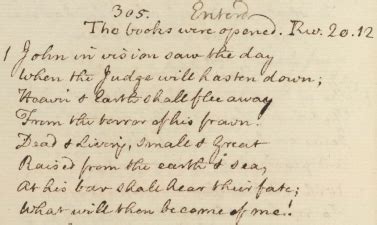 305. Enterd
The books were opened. Rev. 20.12
1 John in vision saw the day
When the Judge will hasten down;
Heav'n & earth shall flee away
From the terror of his frown:
Dead & living, small & great
Raised from the earth & sea;
At his bar shall hear their fate;
What will then become of me!